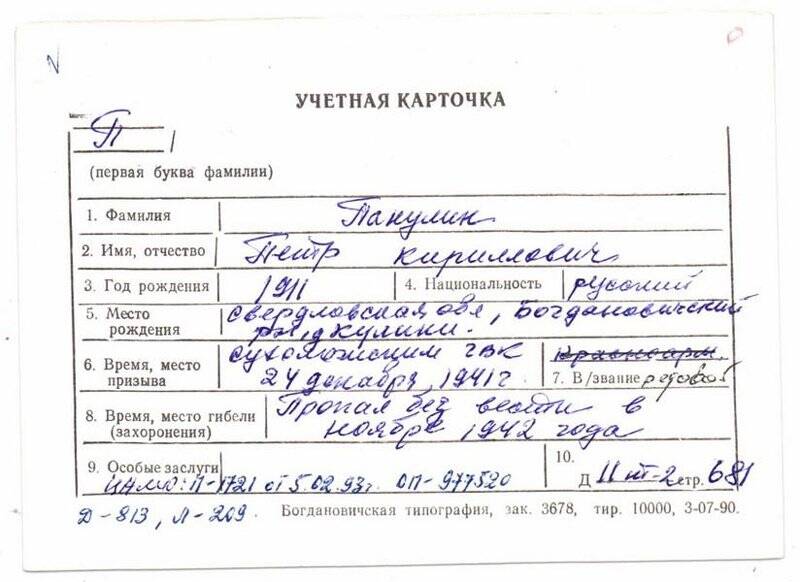 УЧЕТНАЯ КАРТОЧКА
П
(первая буква фамилии)
1. Фамилия Панулин
2. Имя, отчество Петр Кириллович
3. Год рождения 1911 4. Национальность русский
5. Место рождения Свердловская обл, Богдановичский
р-н,
6. Время, место призыва Сухоложским ГВК
24 декабря 1941 г. Красноарм.
7. В/звание рядовой
8. Время, место гибели (захоронения) Пропал без вести в
ноябре 1942 года
9. Особые заслуги 10.
ЦАМО: П-1721 от 5.02.93г. ОП-977520 Д II т-2 стр. 681
Д-813, Л-209 Богдановичская типография, зак. 3678, тир. 10000, 3-07-90.